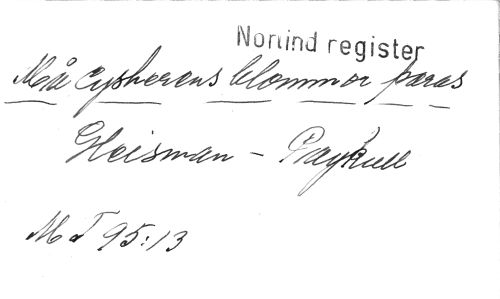 Norlind register
Må Cypherens blommor paras
Gleisman - Paykull
M T 95:13